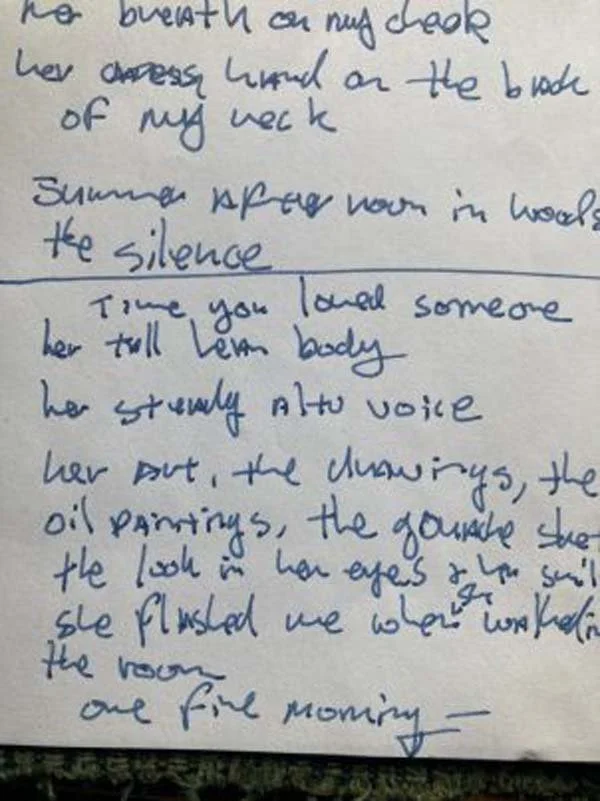 her breath on my cheek
her caress, hand on the back
of my neck
Summer Afternoon in woods
the silence
Time you loved someone
her tall lean body
her steady alto voice
her art, the drawings, the
oil paintings, the gouache
the look in her eyes & her
she flashed me when she walked in
the room
one fine morning —